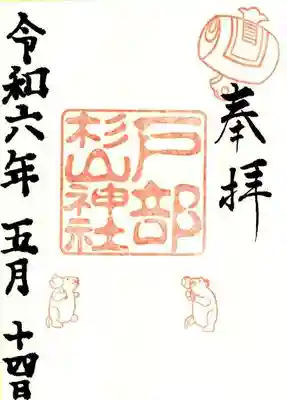 奉拝
戸部
杉山神社
令和六年 五月 十四日